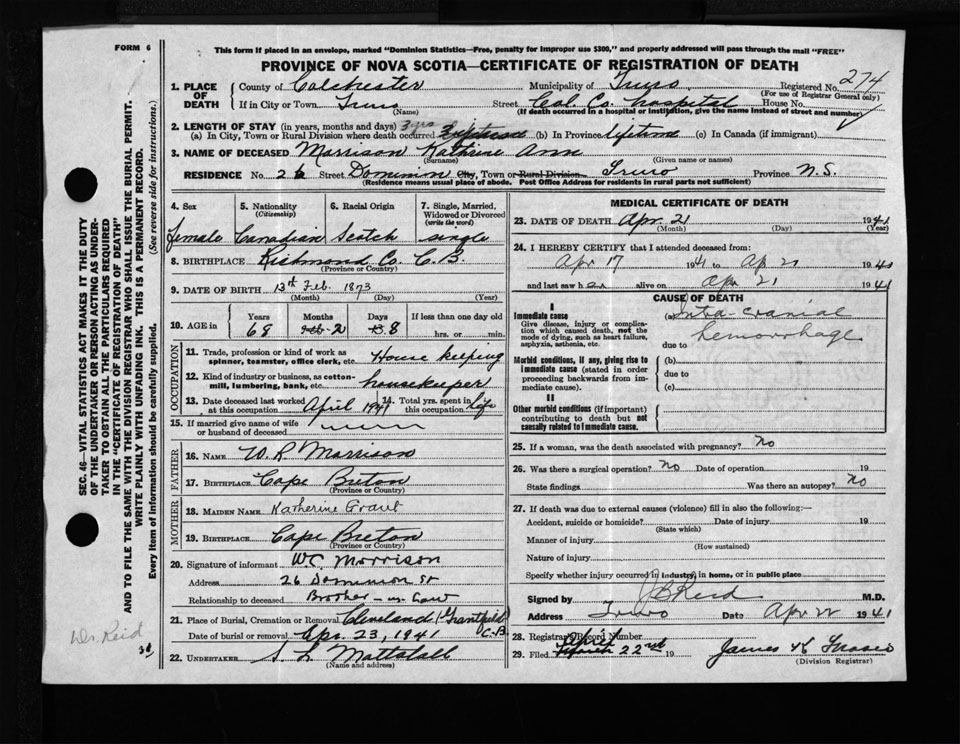 FORM 6
This form if placed in an envelope, marked "Dominion Statistics—Free, penalty for improper use $300," and properly addressed will pass through the mail "FREE"
PROVINCE OF NOVA SCOTIA—CERTIFICATE OF REGISTRATION OF DEATH
1. PLACE OF DEATH County of Colchester Municipality of Truro Registered No. 274
(For use of Registrar General only)
If in City or Town Truro Street Col. Co. hospital House No.
(If death occurred in a hospital or institution, give the name instead of street and number)
2. LENGTH OF STAY (in years, months and days)
(a) In City, Town or Rural Division where death occurred 3 yrs (b) In Province lifetime (c) In Canada (if immigrant)
3. NAME OF DECEASED Morrison Kathrine Ann
(Surname) (Given name or names)
RESIDENCE No. 26 Street Dominion City, Town or Rural Division Truro Province N.S.
(Residence means usual place of abode. Post Office Address for residents in rural parts not sufficient)
4. Sex female
5. Nationality (Citizenship) Canadian
6. Racial Origin Scotch
7. Single, Married, Widowed or Divorced (write the word) single
8. BIRTHPLACE Richmond Co. C.B.
(Province or Country)
9. DATE OF BIRTH 13th Feb. 1873
(Month) (Day) (Year)
10. AGE in Years 68 Months 2 Days 8 If less than one day old hrs. or min.
OCCUPATION
11. Trade, profession or kind of work as spinner, teamster, office clerk, etc. House keeping
12. Kind of industry or business, as cotton-mill, lumbering, bank, etc. housekeeper
13. Date deceased last worked at this occupation April 1941 14. Total yrs. spent in this occupation life
15. If married give name of wife or husband of deceased
FATHER
16. NAME W. R. Morrison
17. BIRTHPLACE Cape Breton
(Province or Country)
MOTHER
18. MAIDEN NAME Katherine Grant
19. BIRTHPLACE Cape Breton
(Province or Country)
20. Signature of informant W.C. Morrison
Address 26 Dominion St
Relationship to deceased Brother-in-law
21. Place of Burial, Cremation or Removal Cleveland (Grantfield) C.B.
Date of burial or removal Apr. 23, 1941
22. UNDERTAKER S. L. Mattatall
(Name and address)
MEDICAL CERTIFICATE OF DEATH
23. DATE OF DEATH Apr 21 1941
(Month) (Day) (Year)
24. I HEREBY CERTIFY that I attended deceased from:
Apr 17 1941 to Ap 21 1941
and last saw her alive on Apr 21 1941
CAUSE OF DEATH
I
Immediate cause
Give disease, injury or complication which caused death, not the mode of dying, such as heart failure, asphyxia, asthenia, etc.
(a) Intra-cranial hemorrhage
due to
Morbid conditions, if any, giving rise to immediate cause (stated in order proceeding backwards from immediate cause).
(b)
due to
(c)
II
Other morbid conditions (if important) contributing to death but not causally related to immediate cause.
25. If a woman, was the death associated with pregnancy? No
26. Was there a surgical operation? No Date of operation 19
State findings Was there an autopsy? No
27. If death was due to external causes (violence) fill in also the following:—
Accident, suicide or homicide? Date of injury 19
(State which)
Manner of injury
(How sustained)
Nature of injury
Specify whether injury occurred in industry, in home, or in public place
Signed by J B Reid M.D.
Address Truro Date Apr 22 1941
28. Registrar's Record Number
29. Filed April 22nd 19 James H Fraser
(Division Registrar)
SEC. 46—VITAL STATISTICS ACT MAKES IT THE DUTY
OF THE UNDERTAKER OR PERSON ACTING AS UNDER-
TAKER TO OBTAIN ALL THE PARTICULARS REQUIRED
IN THE "CERTIFICATE OF REGISTRATION OF DEATH"
AND TO FILE THE SAME WITH THE DIVISION REGISTRAR WHO SHALL ISSUE THE BURIAL PERMIT.
WRITE PLAINLY WITH UNFADING INK. THIS IS A PERMANENT RECORD.
Every item of information should be carefully supplied. (See reverse side for instructions.)
Dr. Reid